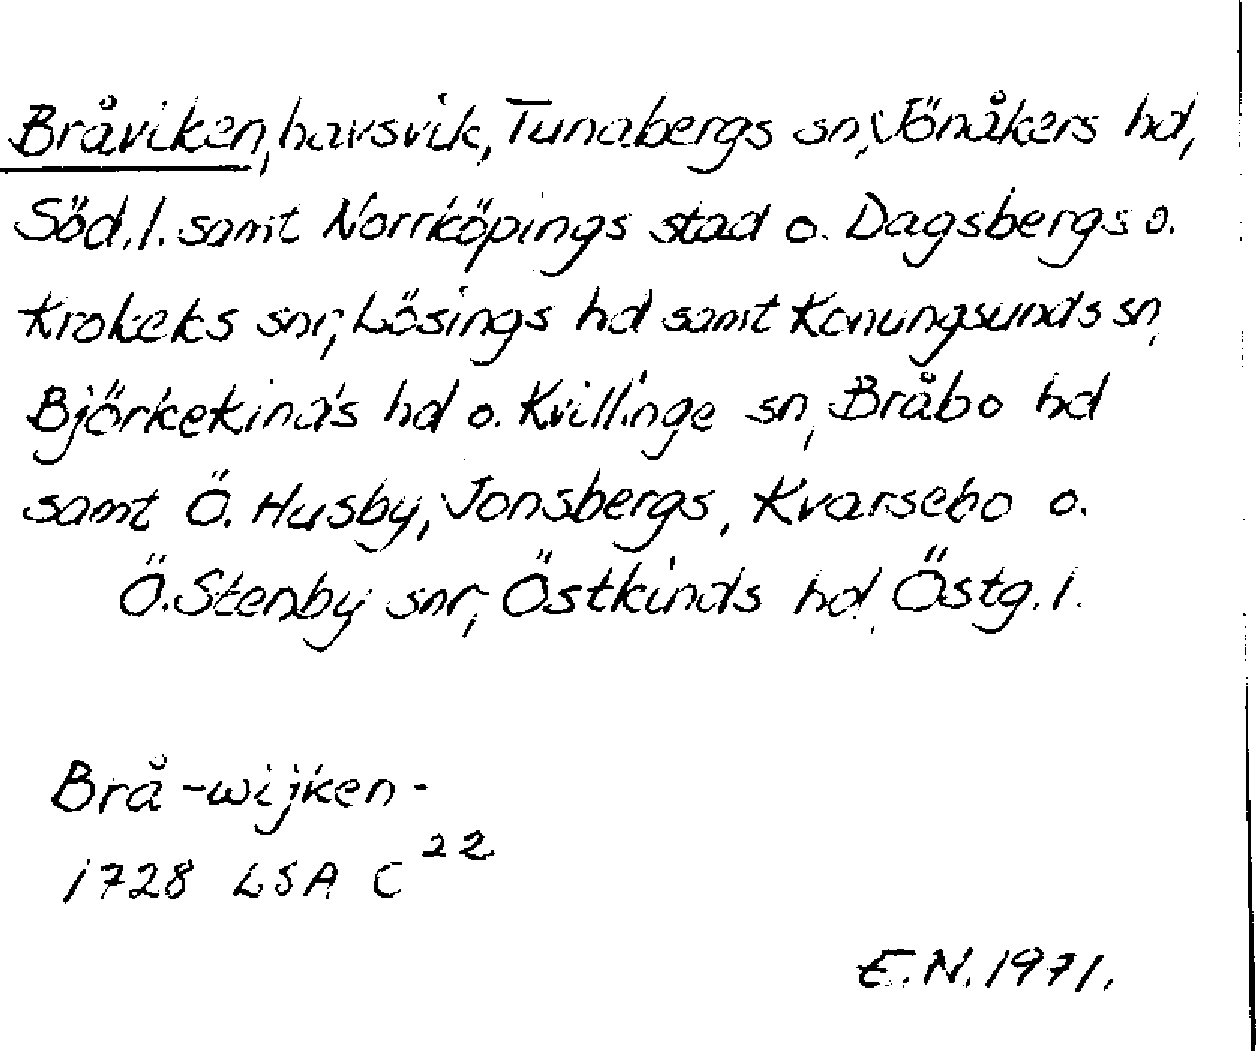 Bråviken, havsvik, Tunabergs sn, Jönåkers hd,
Söd.l. samt Norrköpings stad o. Dagsbergs o.
Krokeks snr, Lösings hd samt Konungsunds sn,
Björkekinds hd o. Kvillinge sn, Bråbo hd
samt Ö. Husby, Jonsbergs, Kvarsebo o.
Ö. Stenby snr, Östkinds hd, Östg.l.
Brå-wijken-
1728 LSA C 22
E.N. 1971.